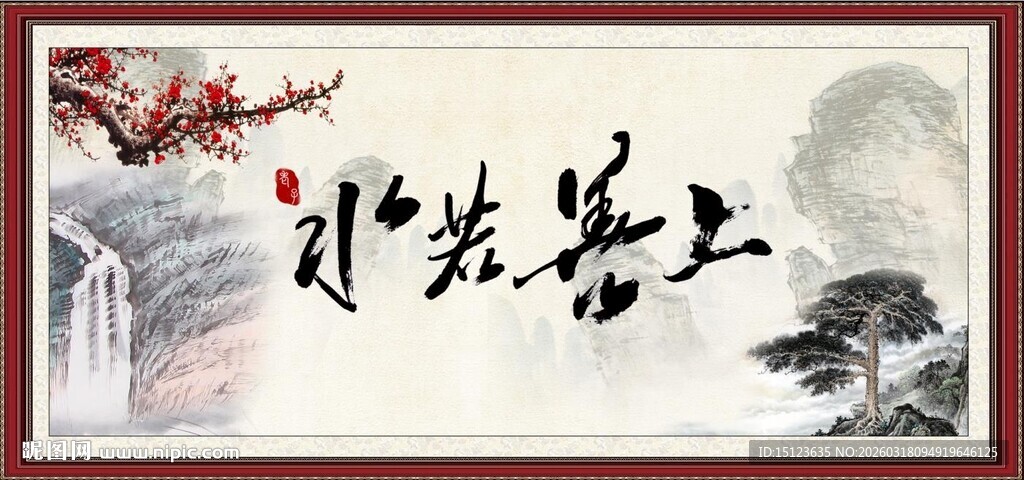 上善若水
老子
昵图网 www.nipic.com
ID:15123635 NO:20260318094919646125